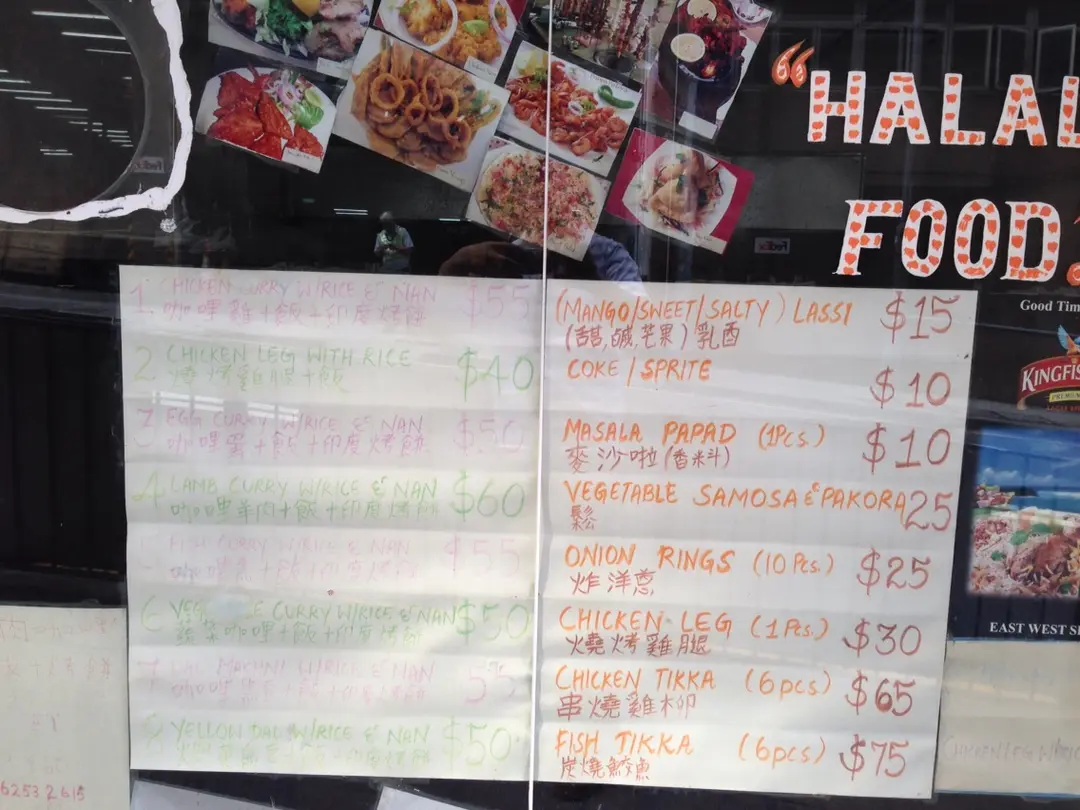 "HALAL
FOOD
FedEx
Good Tim
KINGFIS
1. CHICKEN CURRY W/RICE & NAN $55
咖哩雞+飯+印度烤餅
2 CHICKEN LEG WITH RICE $40
燒烤雞腿+飯
3 EGG CURRY W/RICE & NAN $50
咖哩蛋+飯+印度烤餅
4 LAMB CURRY W/RICE & NAN $60
咖哩羊肉+飯+印度烤餅
FISH CURRY W/RICE & NAN $55
6 CURRY W/RICE & NAN $50
菜咖哩+飯+印度烤餅
7 DAL MAKHNI W/RICE & NAN 55
8 YELLOW DAL W/RICE & NAN $50
(MANGO/SWEET/SALTY) LASSI $15
(甜,鹹,芒果) 乳酉
COKE / SPRITE $10
MASALA PAPAD (1Pcs.) $10
麥沙啦(香米斗)
VEGETABLE SAMOSA & PAKORA 25
鬆
ONION RINGS (10 Pcs.) $25
炸洋蔥
CHICKEN LEG (1 Pcs.) $30
火燒烤雞腿
CHICKEN TIKKA (6pcs) $65
串燒雞柳
FISH TIKKA (6pcs) $75
炭燒鮫魚
EAST WEST S
6253 2615
CHICKEN LEG W/RICE